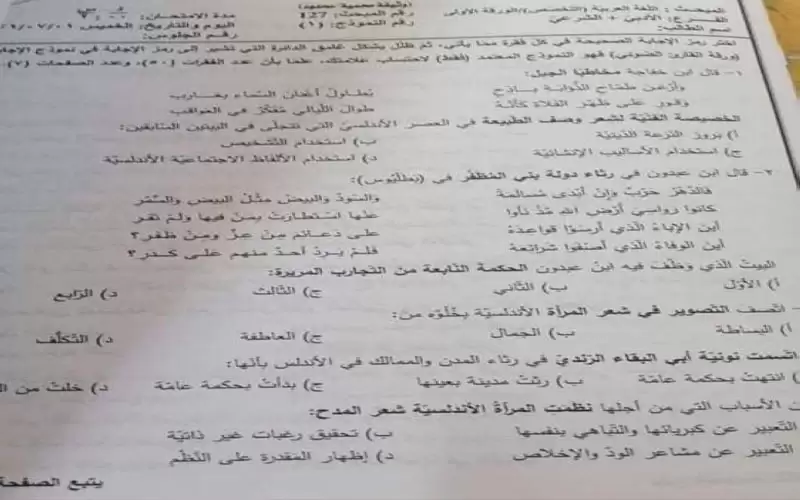 (وثيقة محمية محدود)
المبحث : اللغة العربية (التخصص)/الورقة الأولى
رقم المبحث: 127
مدة الامتحان:
الفرع: الأدبي + الشرعي
رقم النموذج: (١)
اليوم والتاريخ: الخميس
اسم الطالب:
رقم الجلوس:
اختر رمز الإجابة الصحيحة في كل فقرة مما يأتي، ثم ظلل بشكل غامق الدائرة التي تشير إلى رمز الإجابة في نموذج الإجابة
(ورقة القارئ الضوئي) فهو النموذج المعتمد (فقط) لاحتساب علامتك، علمًا بأن عدد الفقرات (٥٠)، وعدد الصفحات (٧).
١- قال ابن خفاجة مخاطبًا الجبل:
وأرعن طمّاح الذؤابة باذخ يُطاول أعنان السّماء بغارب
وقور على ظهر الفلاة كأنّه طوال الليالي مُفكّر في العواقب
الخصيصة الفنيّة لشعر وصف الطبيعة في العصر الأندلسيّ التي تتجلّى في البيتين السابقين:
أ) بروز النزعة الدّينيّة ب) استخدام التّشخيص
ج) استخدام الأساليب الإنشائيّة د) استخدام الألفاظ الاجتماعيّة الأندلسيّة
٢- قال ابن عبدون في رثاء دولة بني المظفّر في (بطليوس):
فالدّهرُ حربٌ وإنْ أبدى مُسالمةً والسّودُ والبيضُ مثلُ البيضِ والسُّمْرِ
كانوا رواسيَ أرْضِ اللهِ مُذْ نأوا عنها اسْتطارتْ بمنْ فيها ولمْ تقرِ
أين الإباءُ الذي أرسَوْا قواعدَهُ على دعائمَ مِن عزٍّ ومِنْ ظفرِ؟
أين الوفاءُ الذي أصفَوْا شرائعَهُ فلمْ يَرِدْ أحدٌ منهم على كدرِ؟
البيتُ الذي وظّف فيه ابنُ عبدون الحكمة النابعة من التجارب المريرة:
أ) الأوّل ب) الثّاني ج) الثالث د) الرّابع
- اتّصف التّصوير في شعر المرأة الأندلسيّة بخُلوّه من:
أ) البساطة ب) الجمال ج) العاطفة د) التّكلّف
اتّسمت نونيّة أبي البقاء الرّنديّ في رثاء المدن والممالك في الأندلس بأنّها:
) انتهتْ بحكمة عامّة ب) رثتْ مدينة بعينها ج) بدأتْ بحكمة عامّة د) خلتْ من
الأسباب التي من أجلها نظمت المرأةُ الأندلسيّة شعر المدح:
التّعبير عن كبريائها والتّباهي بنفسها ب) تحقيق رغبات غير ذاتيّة
التّعبير عن مشاعر الودّ والإخلاص د) إظهار المقدرة على النّظْم
يتبع الصفحة